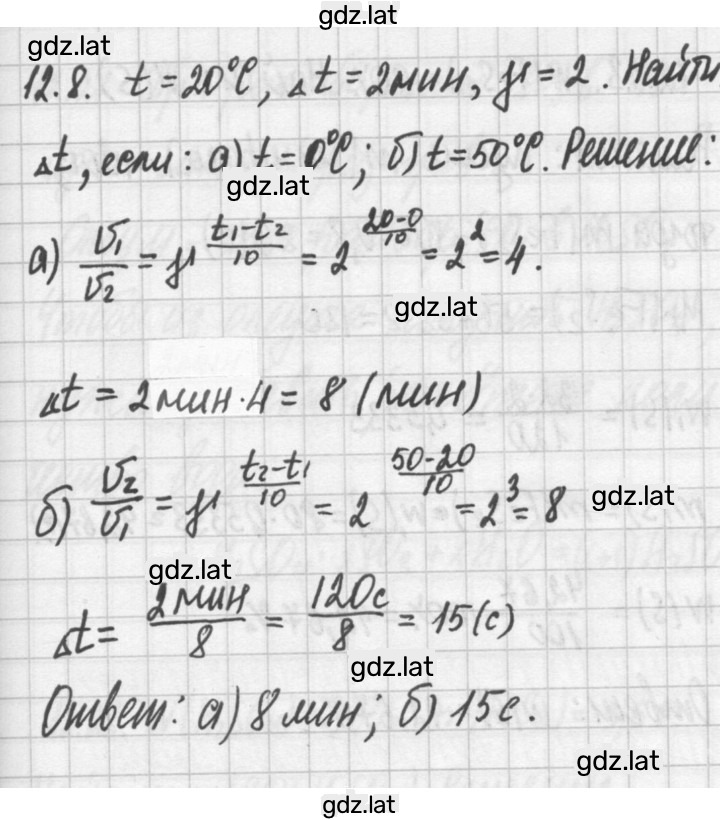 gdz.lat
gdz.lat
12.8. t = 20°C, Δt = 2мин, γ = 2. Найти
Δt, если: а) t = 0°C; б) t = 50°C. Решение:
gdz.lat
а) V₁/V₂ = γ^((t₁-t₂)/10) = 2^((20-0)/10) = 2² = 4.
gdz.lat
Δt = 2мин·4 = 8 (мин)
б) V₂/V₁ = γ^((t₂-t₁)/10) = 2^((50-20)/10) = 2³ = 8
gdz.lat
gdz.lat
Δt = 2мин/8 = 120с/8 = 15(с)
gdz.lat
Ответ: а) 8 мин; б) 15с.
gdz.lat
gdz.lat